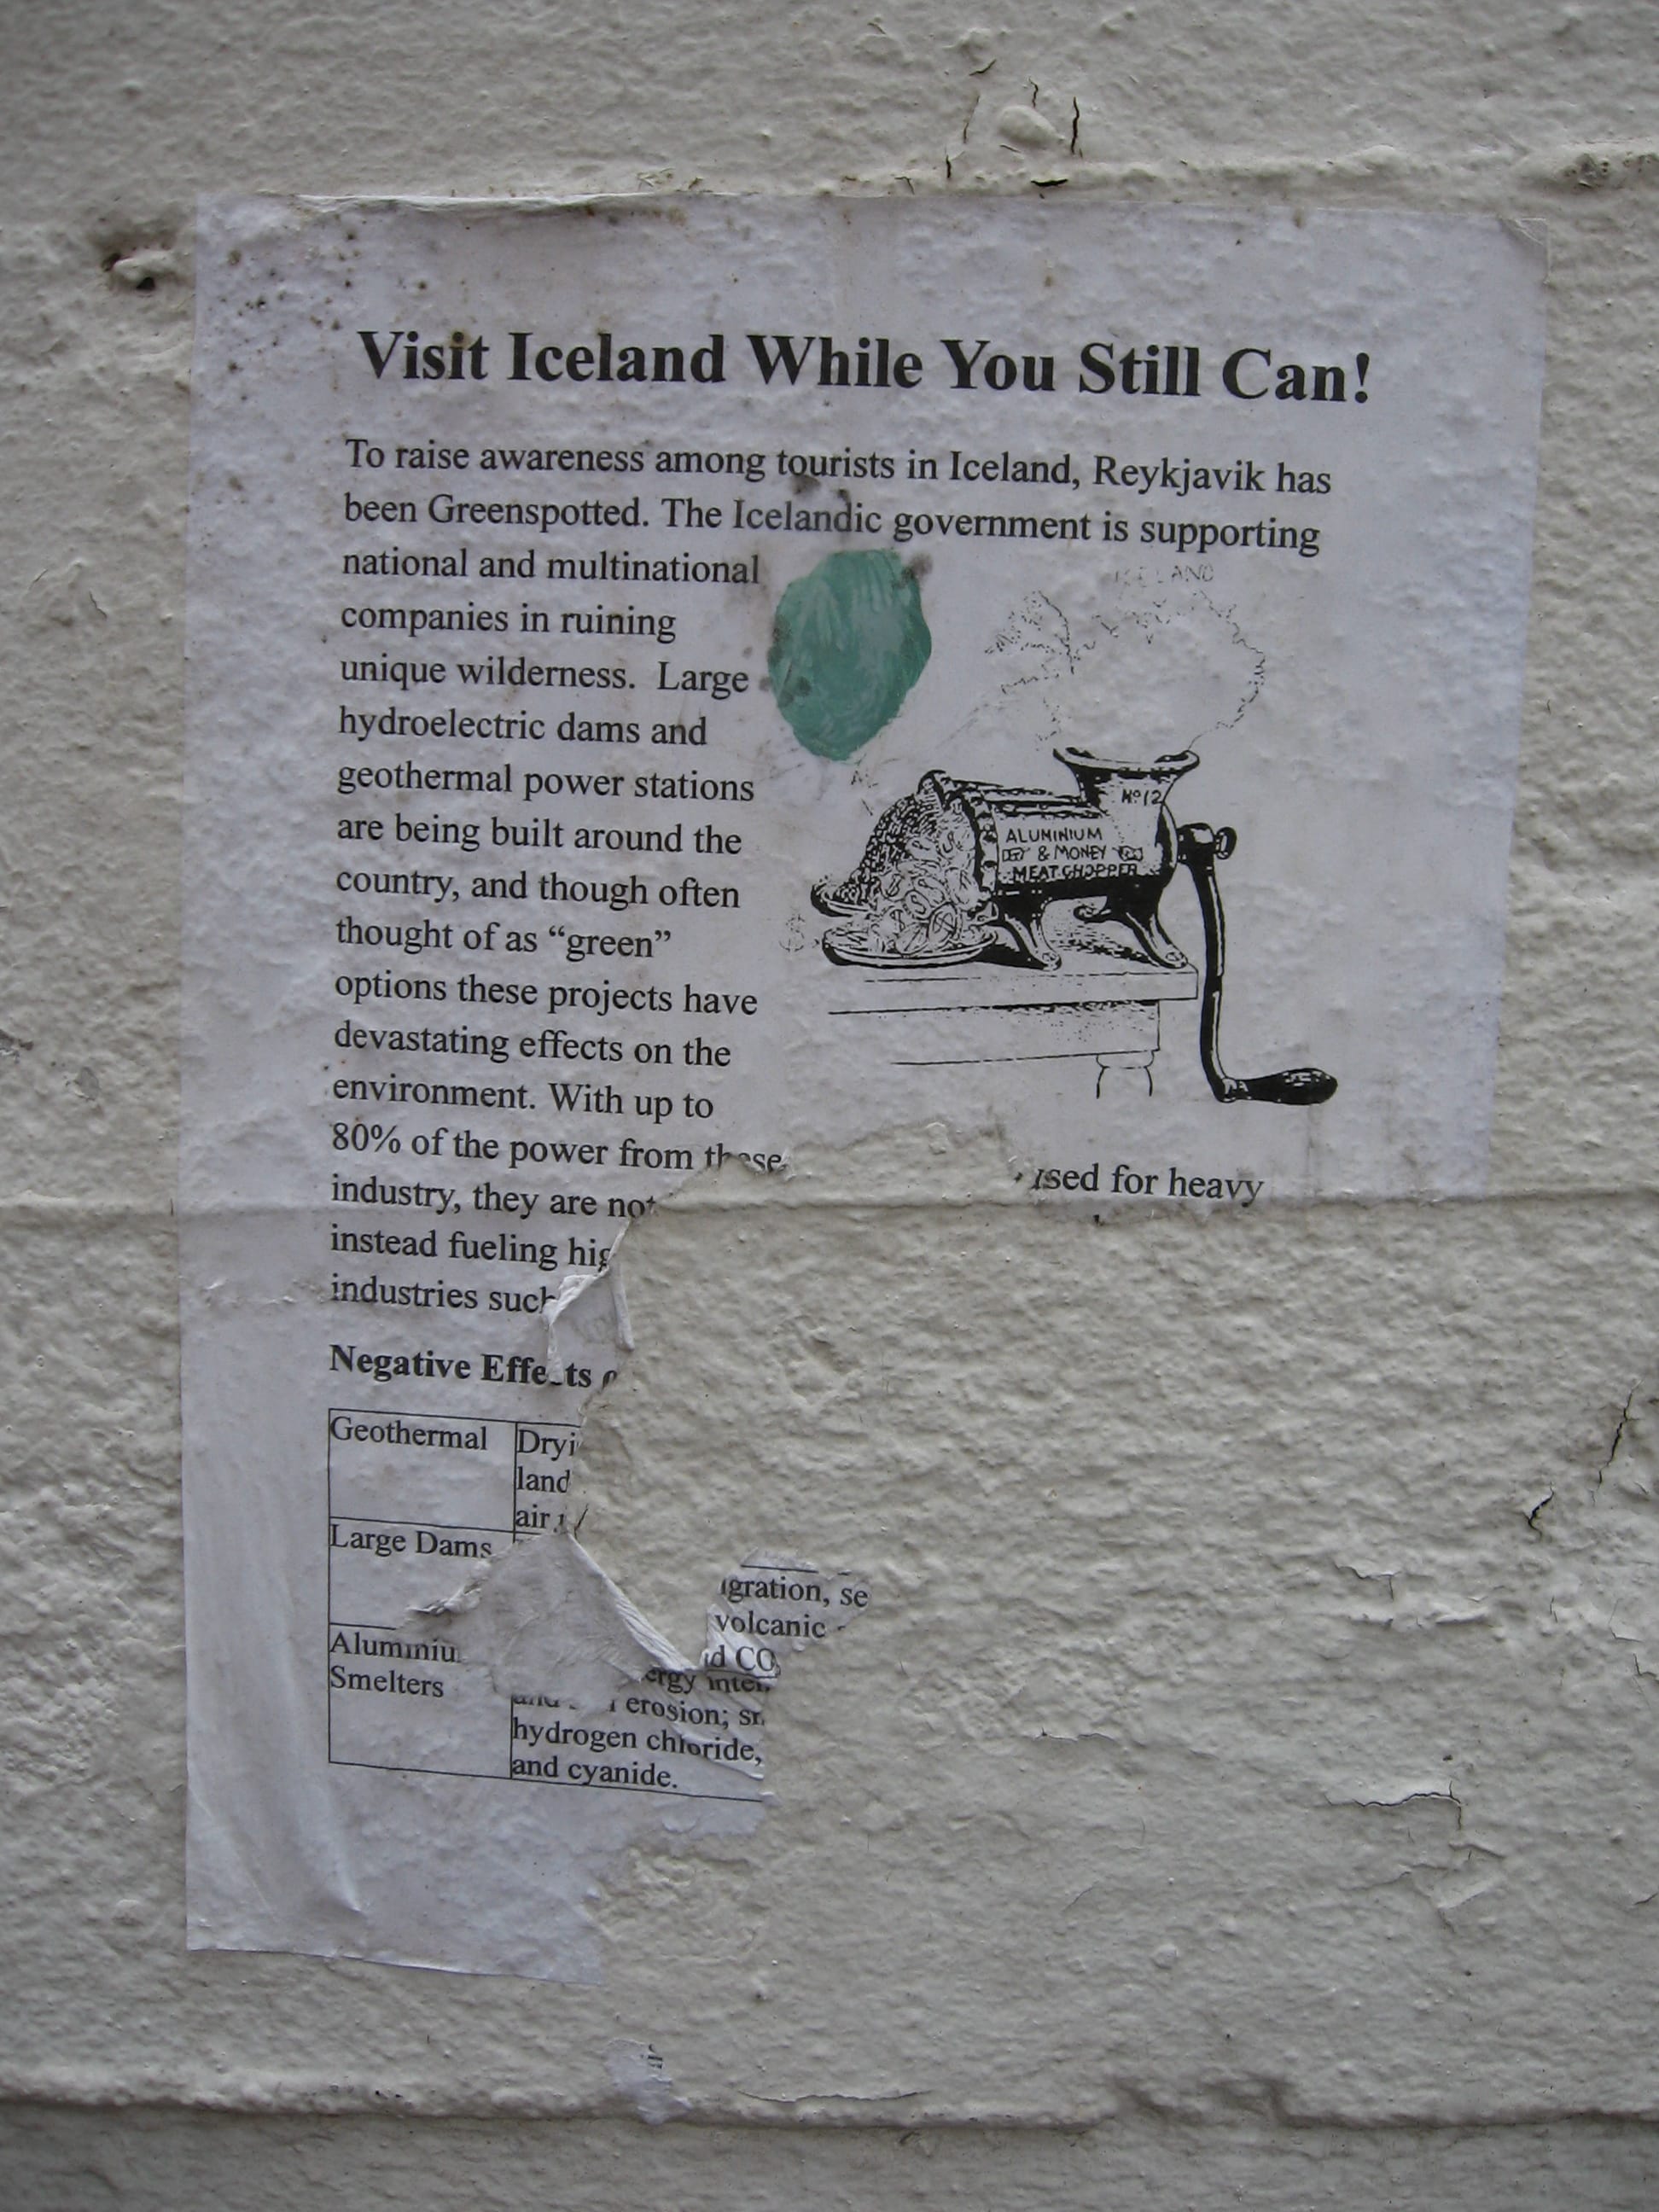 Visit Iceland While You Still Can!
To raise awareness among tourists in Iceland, Reykjavik has
been Greenspotted. The Icelandic government is supporting
national and multinational
companies in ruining
unique wilderness. Large
hydroelectric dams and
geothermal power stations
are being built around the
country, and though often
thought of as “green”
options these projects have
devastating effects on the
environment. With up to
80% of the power from these
used for heavy
industry, they are not
instead fueling
industries such
ICELAND
Nº12
ALUMINIUM
& MONEY
MEAT CHOPPER
Negative Effects
Geothermal
land
air
Large Dams
se
volcanic
CO
Aluminiu
Smelters
erosion;
hydrogen chloride,
and cyanide.